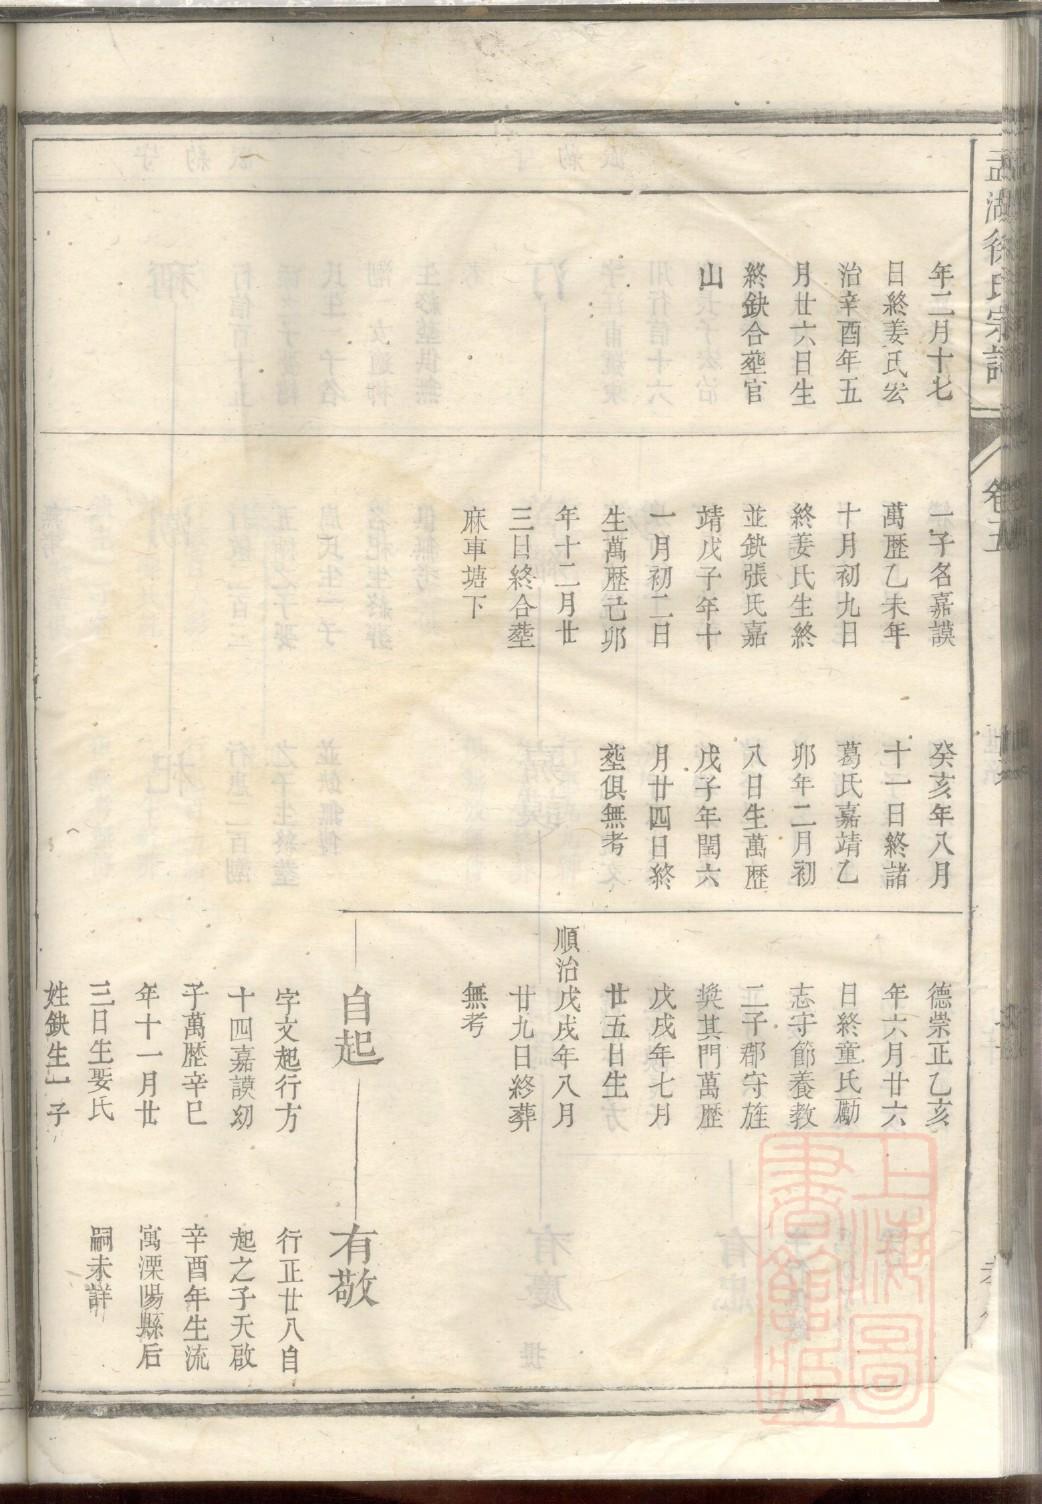 孟湖徐氏宗譜
卷五
年二月十七
日終姜氏宏
治辛酉年五
月廿六日生
終鈌合塟官
山
一子名嘉謨
萬歷乙未年
十月初九日
終姜氏生終
並鈌張氏嘉
靖戊子年十
一月初二日
生萬歷己卯
年十二月廿
三日終合塟
麻車塘下
癸亥年八月
十一日終諸
葛氏嘉靖乙
卯年二月初
八日生萬歷
戊子年閏六
月廿四日終
塟俱無考
德崇正乙亥
年六月廿六
日終童氏勵
志守節養教
二子郡守旌
獎其門萬歷
戊戌年七月
廿五日生
順治戊戌年八月
廿九日終葬
無考
自起
字文起行方
十四嘉謨幼
子萬歷辛巳
年十一月廿
三日生娶氏
姓鈌生一子
有敬
行正廿八自
起之子天啟
辛酉年生流
寓溧陽縣后
嗣未詳
上海圖
書館藏